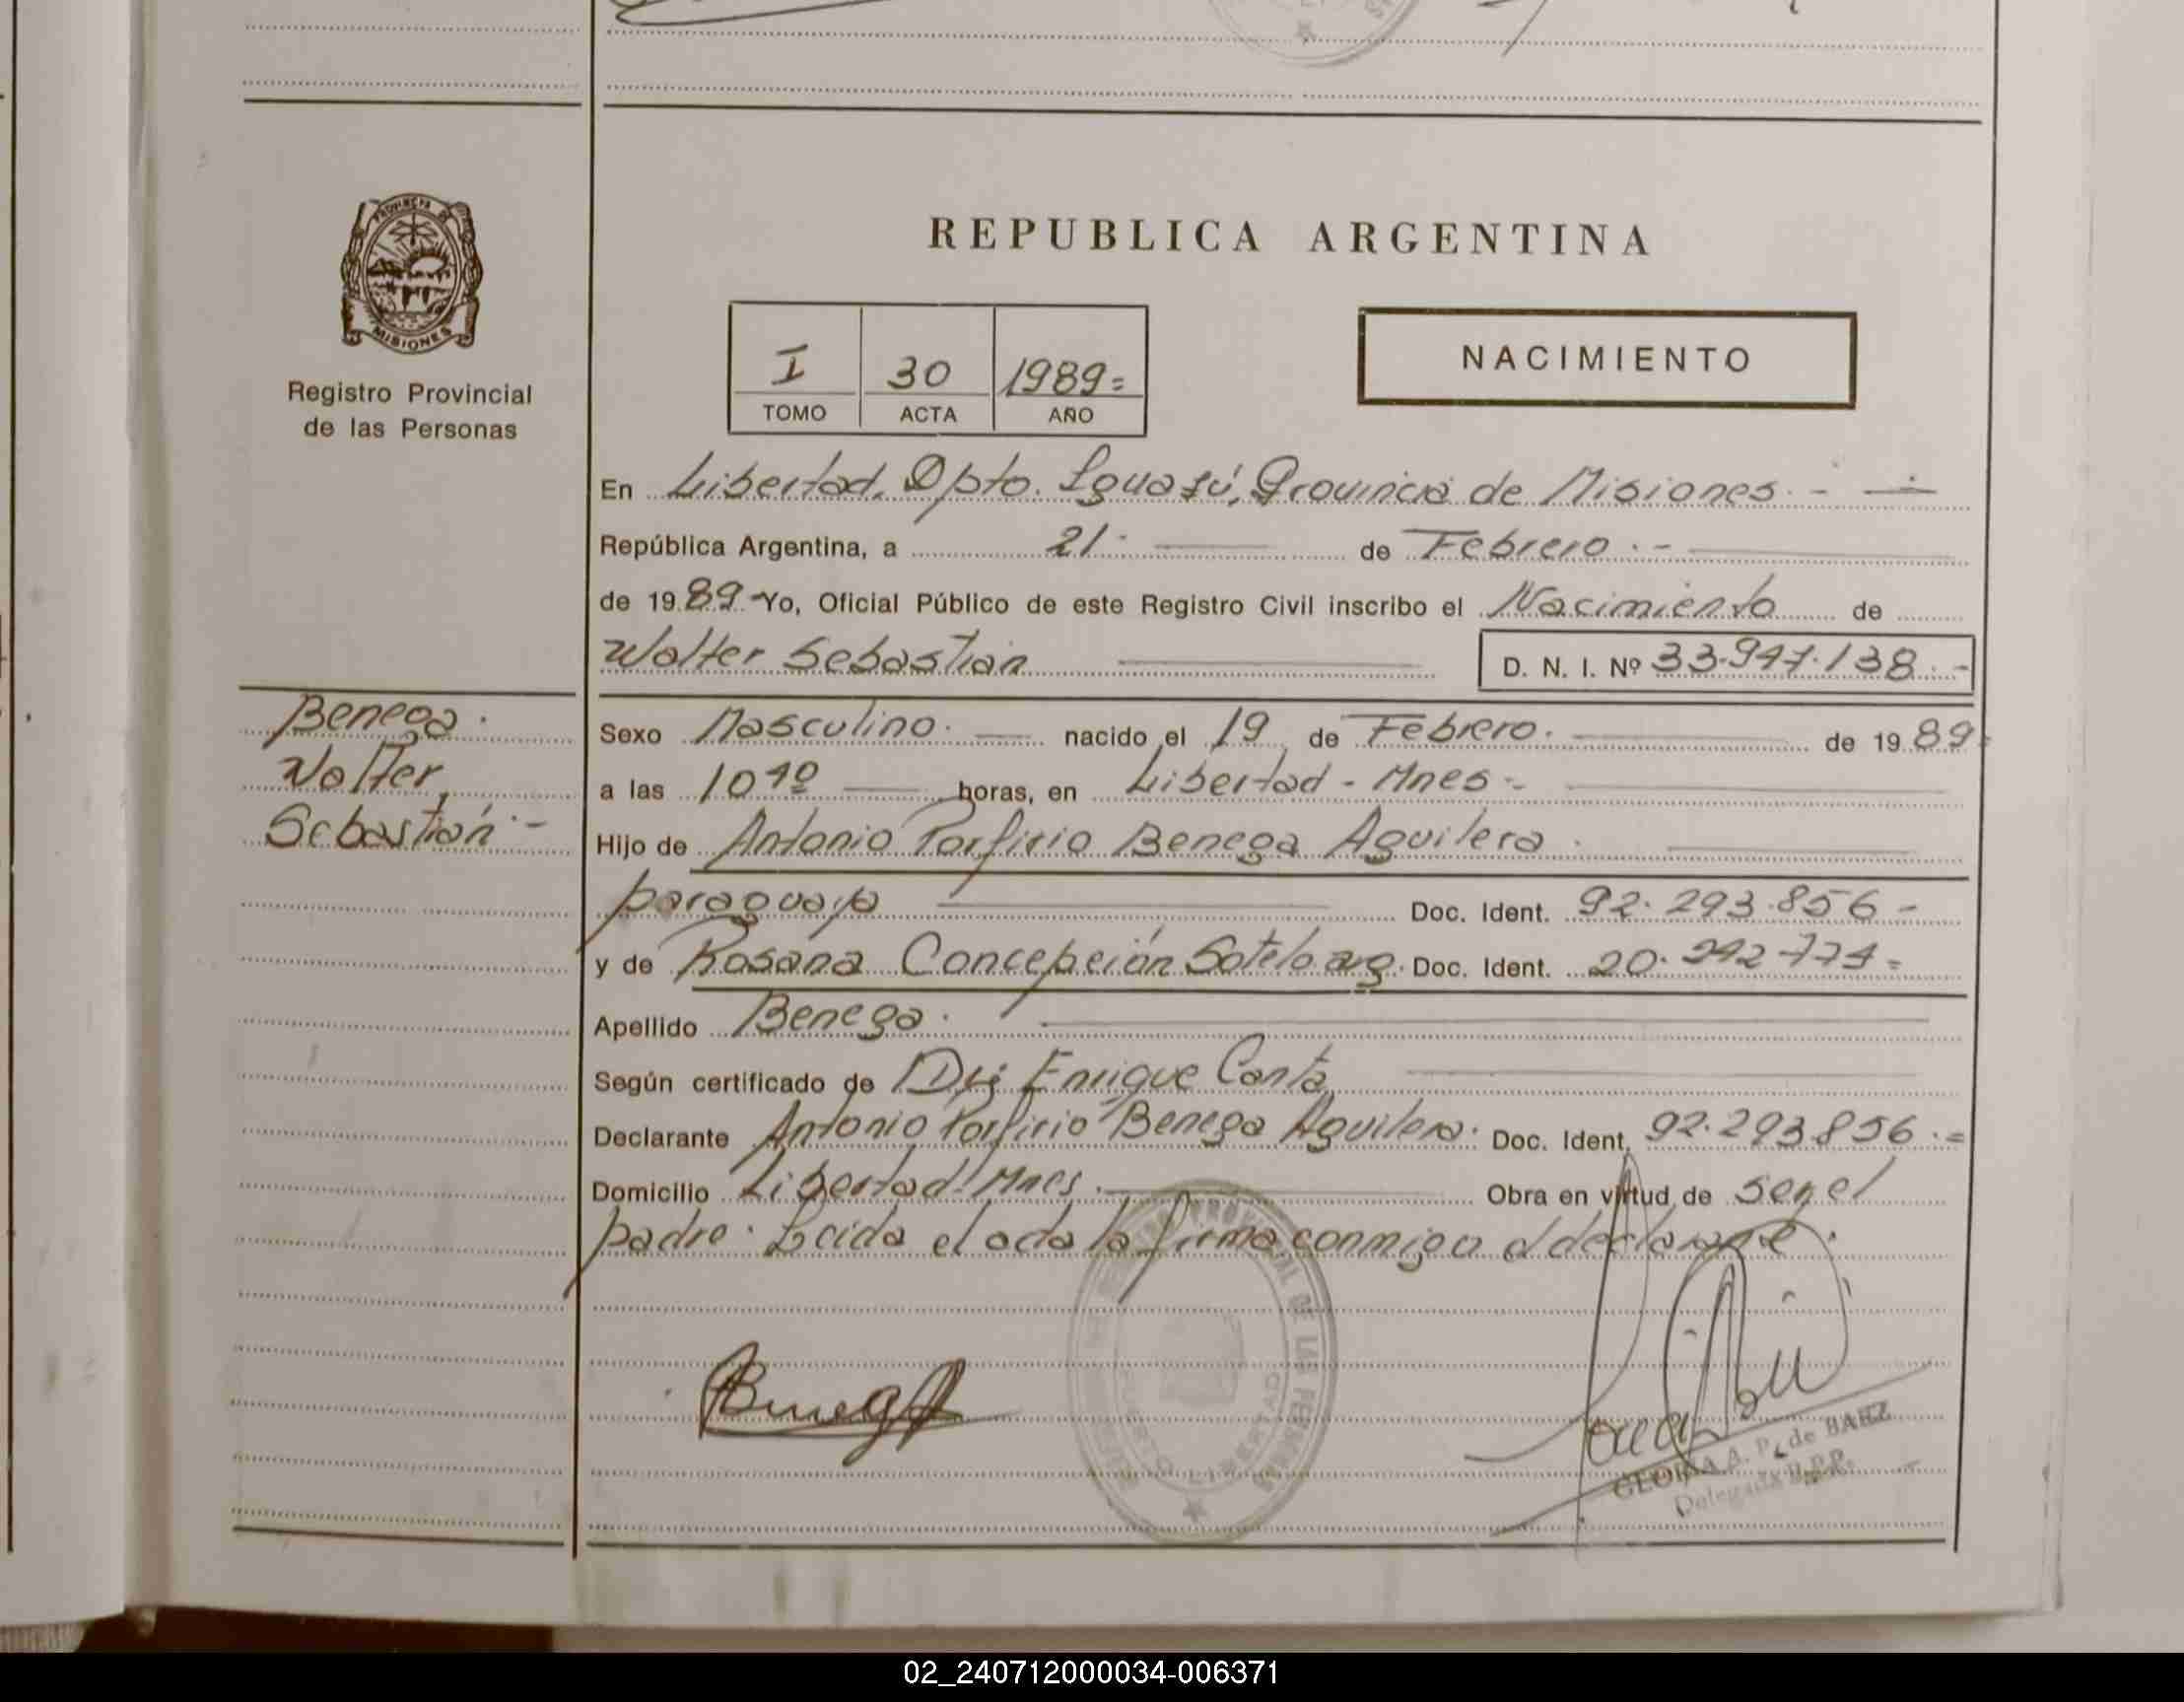 PROVINCIA DE
MISIONES
Registro Provincial
de las Personas
REPUBLICA ARGENTINA
I 30 1989=
TOMO ACTA AÑO
NACIMIENTO
En Libertad. Dpto. Iguazú, Provincia de Misiones.-
República Argentina, a 21.- de Febrero.-
de 1989 Yo, Oficial Público de este Registro Civil inscribo el Nacimiento de
Walter Sebastian D. N. I. Nº 33.947.138.-
Benega.
Walter,
Sebastián.-
Sexo Masculino. nacido el 19 de Febrero. de 1989=
a las 10 horas, en Libertad - Mnes-
Hijo de Antonio Porfirio Benega Aguilera
paraguayo Doc. Ident. 92.293.856-
y de Rosana Concepción Sotelo arg. Doc. Ident. 20.
Apellido Benega.
Según certificado de Enrique Canta
Declarante Antonio Porfirio Benega Aguilera. Doc. Ident. 92.293.856.=
Domicilio Libertad Mnes. Obra en virtud de ser el
padre. Leida el acta la firma conmigo el declarante.
Benega
PROVINCIAL DE LAS PERSONAS
PUERTO LIBERTAD
GLORIA A. P. de BAEZ
Delegada R.P.P.
02_240712000034-006371